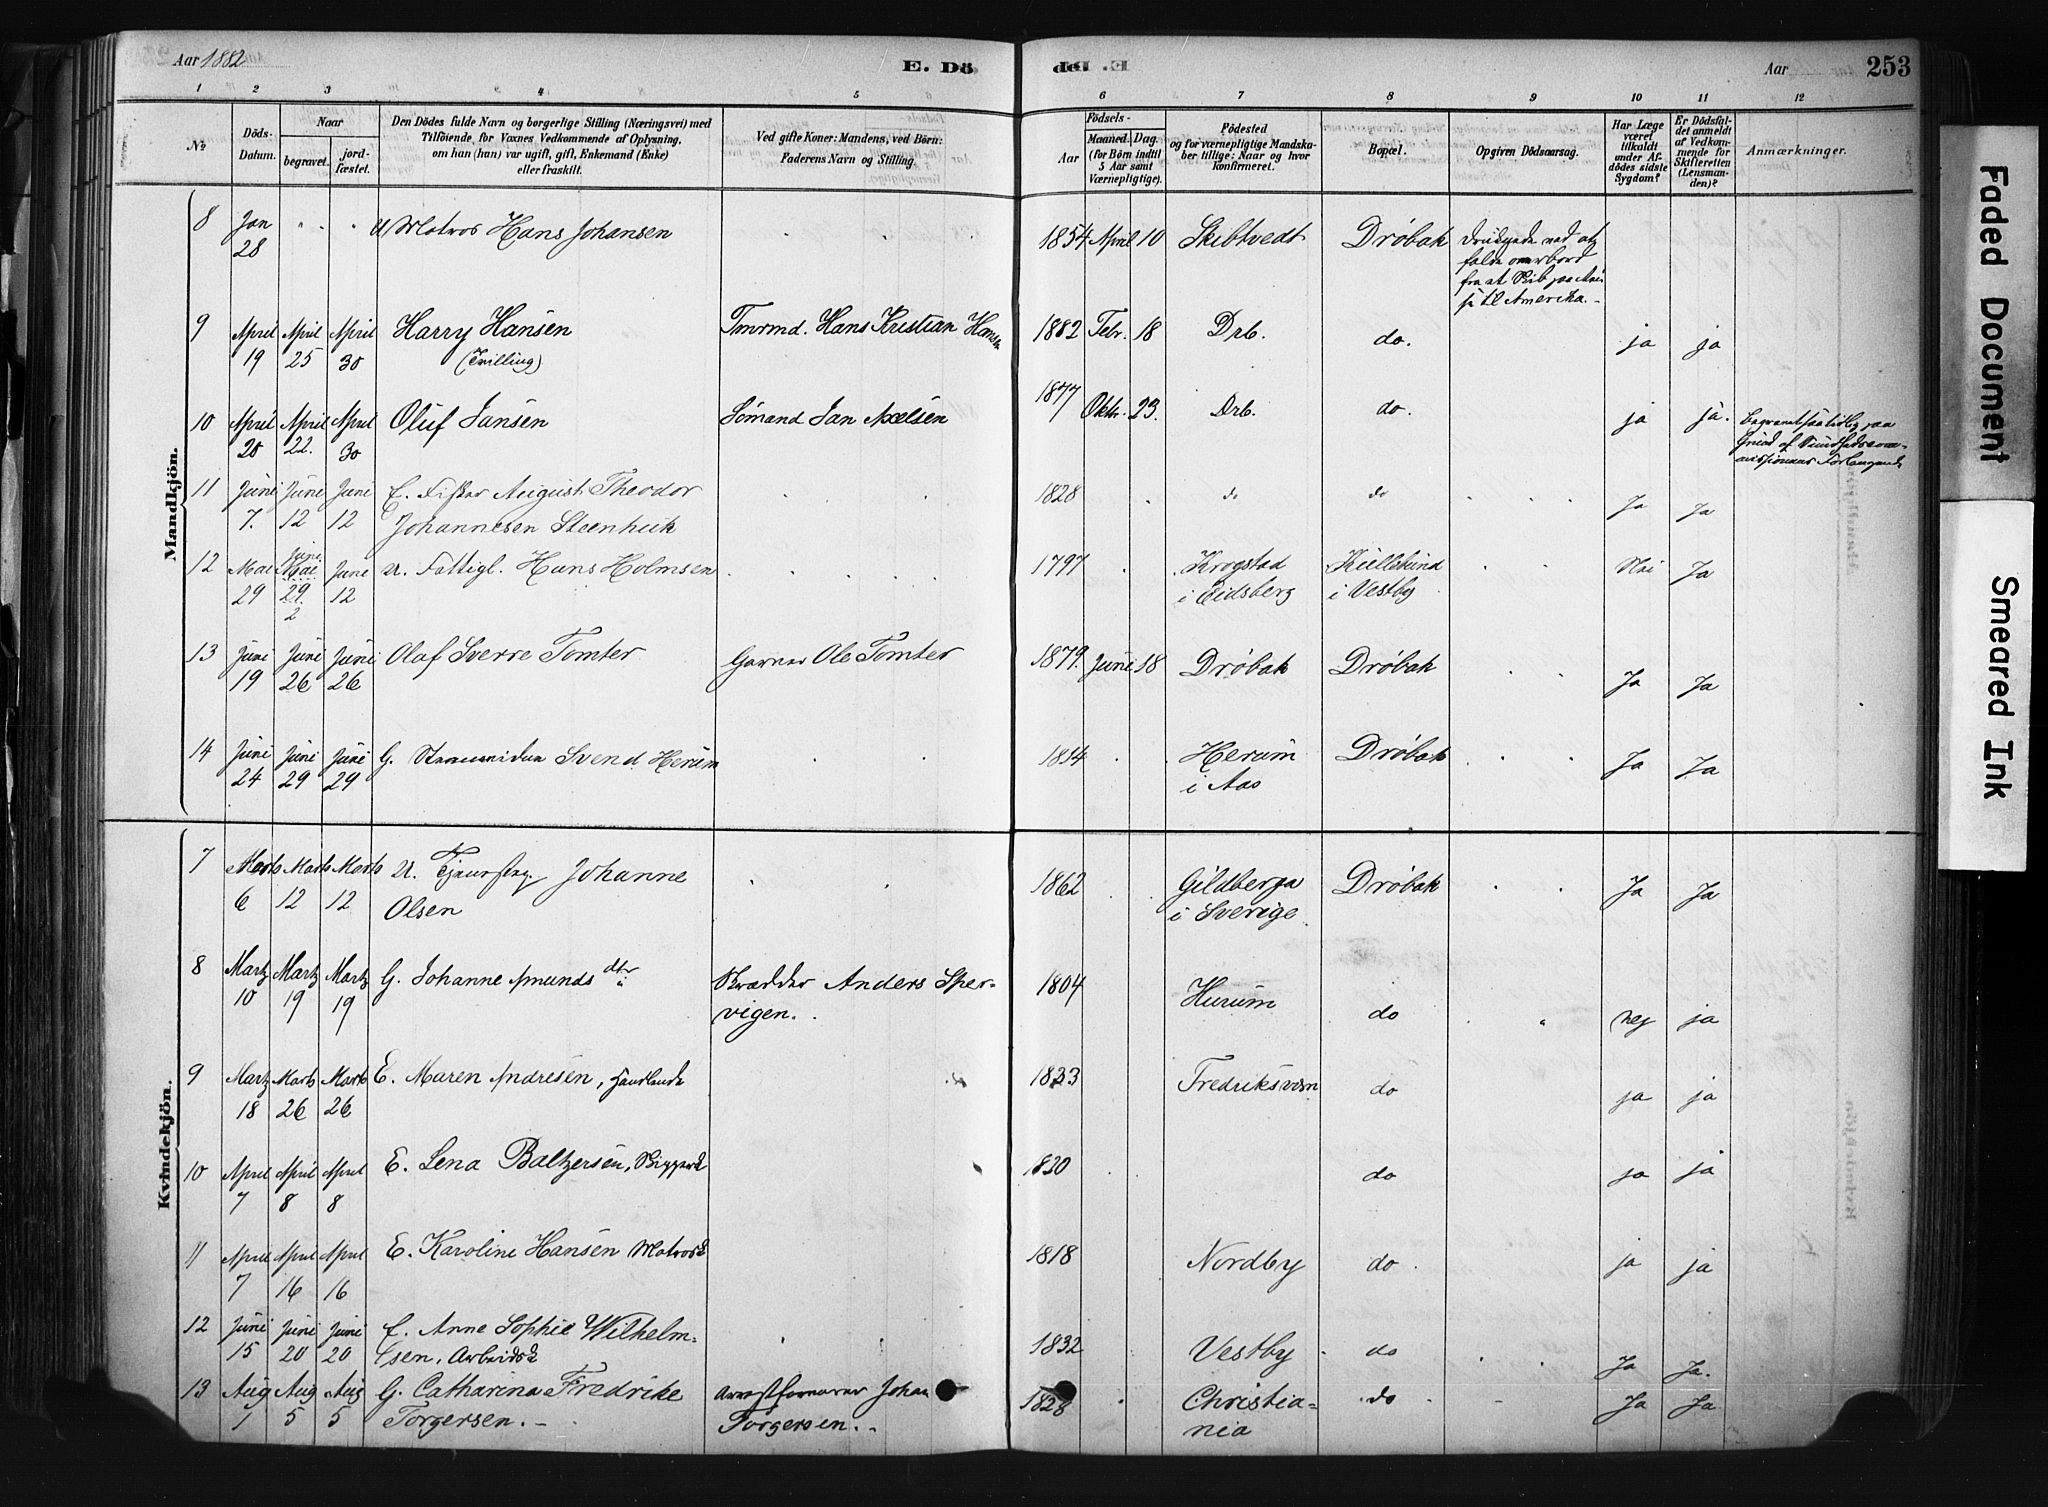 Aar 1882
E. Dö
Aar
253
1 2 3 4 5 6 7 8 9 10 11 12
№
Döds-
Datum.
Naar
begravet.
jord-
fæstet.
Den Dödes fulde Navn og borgerlige Stilling (Næringsvei) med
Tilföiende, for Voxnes Vedkommende af Oplysning,
om han (hun) var ugift, gift, Enkemand (Enke)
eller fraskilt.
Ved gifte Koner: Mandens, ved Börn:
Faderens Navn og Stilling.
Födsels-
Aar
Maaned. Dag.
(for Börn indtil
5 Aar samt
Værnepligtige).
Födested
og for værnepligtige Mandska-
ber tillige: Naar og hvor
konfirmeret.
Bopæl.
Opgiven Dödsaarsag.
Har Læge
været
tilkaldt
under Af-
dödes sidste
Sygdom?
Er Dödsfal-
det anmeldt
af Vedkom-
mende for
Skifteretten
(Lensman-
den)?
Anmærkninger.
Mandkjön.
8 Jan 28 U Matros Hans Johansen 1854 April 10 Skibtvedt Dröbak
Druknede ved at
falde overbord
fra et Skib paa
til Amerika.
9 April 19 April 25 April 30 Harry Hansen Tmrmd. Hans Kristian Hansen 1882 Febr. 18 Drb. do. ja ja
(Tvilling)
10 April 20 April 22. April 30 Oluf Jansen Sömand Jan Axelsen 1877 Oktr. 23. Drb. do. ja ja.
Begravet saa tidlig paa
Grund af Sundhedskom-
missionens Forlangende
11 Juni 7. Juni 12 Juni 12 E. Fisker August Theodor 1828 do do Ja Ja
Johannesen Steenhuk
12 Mai 29 Juni Mai 29 2 Juni 12 U. Fattigl. Hans Holmsen 1797 Krogstad Kiellesund Nei Ja
i Eidsberg i Vestby
13 Juni 19 Juni 26 Juni 26 Olaf Sverre Tomter Garver Ole Tomter 1879. Juni 18 Dröbak Dröbak Ja Ja
14 Juni 24 Juni 29 Juni 29 G. Svend Herum 1814 Herum Dröbak Ja Ja
i Aas
Kvindekjön.
7 Marts 6 Marts 12 Marts 12 U. Johanne 1862 Gildberga Dröbak Ja Ja
Olsen i Sverige
8 Martz 10 Martz 19 Martz 19 G. Johanne Amundsdtr Skrædder Anders Sper- 1804 Hurum do nej ja
vigen.
9 Martz 18 Marts 26 Marts 26 E. Maren Andresen, Handlende 1833 Fredriksværn do ja ja
10 April 7 April 8 April 8 E. Lena Baltzersen, 1830 do ja ja
11 April 7 April 16 April 16 E. Karoline Hansen Matrosk 1818 Nordby do ja ja
12 Juni 15 Juni 20 Juni 20 E. Anne Sophie Wilhelm- 1832 Vestby do Ja Ja.
sen, Arbeidsk
13 Aug 1 Aug 5 Aug 5 G. Catharina Fredrike Arrestforvarer Johan 1828 Christia- do Ja Ja
Torgersen. Torgersen. nia
Faded Document
Smeared Ink